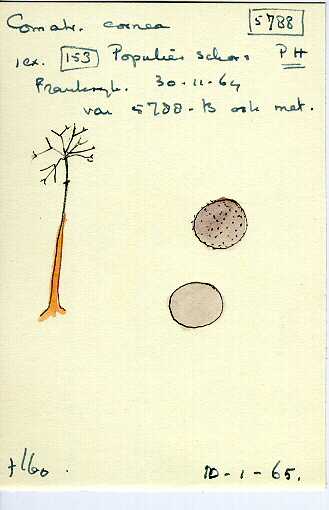 Comatr. cornea 5788
ex. 153 Populier schors PH
Frankrijk. 30-11-64
van 5788-B ook met.
+160.
10-1-65.